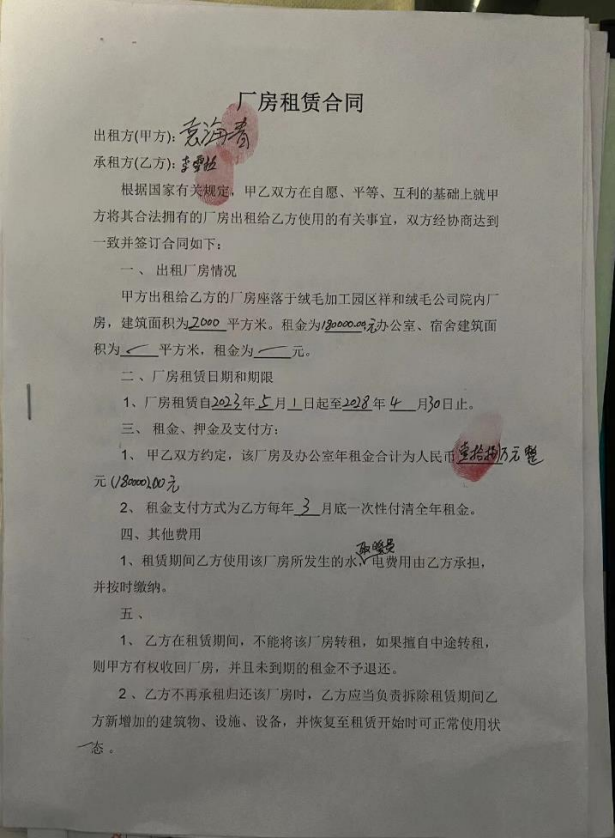 厂房租赁合同
出租方(甲方): 袁海青
承租方(乙方): 李
根据国家有关规定、甲乙双方在自愿、平等、互利的基础上就甲
方将其合法拥有的厂房出租给乙方使用的有关事宜，双方经协商达到
一致并签订合同如下:
一、出租厂房情况
甲方出租给乙方的厂房座落于绒毛加工园区祥和绒毛公司院内厂
房，建筑面积为2000平方米。租金为180000.00元办公室、宿舍建筑面
积为 平方米，租金为 元。
二、厂房租赁日期和期限
1、厂房租赁自2023年5月1日起至2028年4月30日止。
三、租金、押金及支付方:
1、甲乙双方约定，该厂房及办公室年租金合计为人民币壹拾捌万元整
元(180000.00元
2、租金支付方式为乙方每年3月底一次性付清全年租金。
四、其他费用
取暖费
1、租赁期间乙方使用该厂房所发生的水、电费用由乙方承担，
并按时缴纳。
五、
1、乙方在租赁期间，不能将该厂房转租，如果擅自中途转租，
则甲方有权收回厂房，并且未到期的租金不予退还。
2、乙方不再承租归还该厂房时，乙方应当负责拆除租赁期间乙
方新增加的建筑物、设施、设备，并恢复至租赁开始时可正常使用状
态。